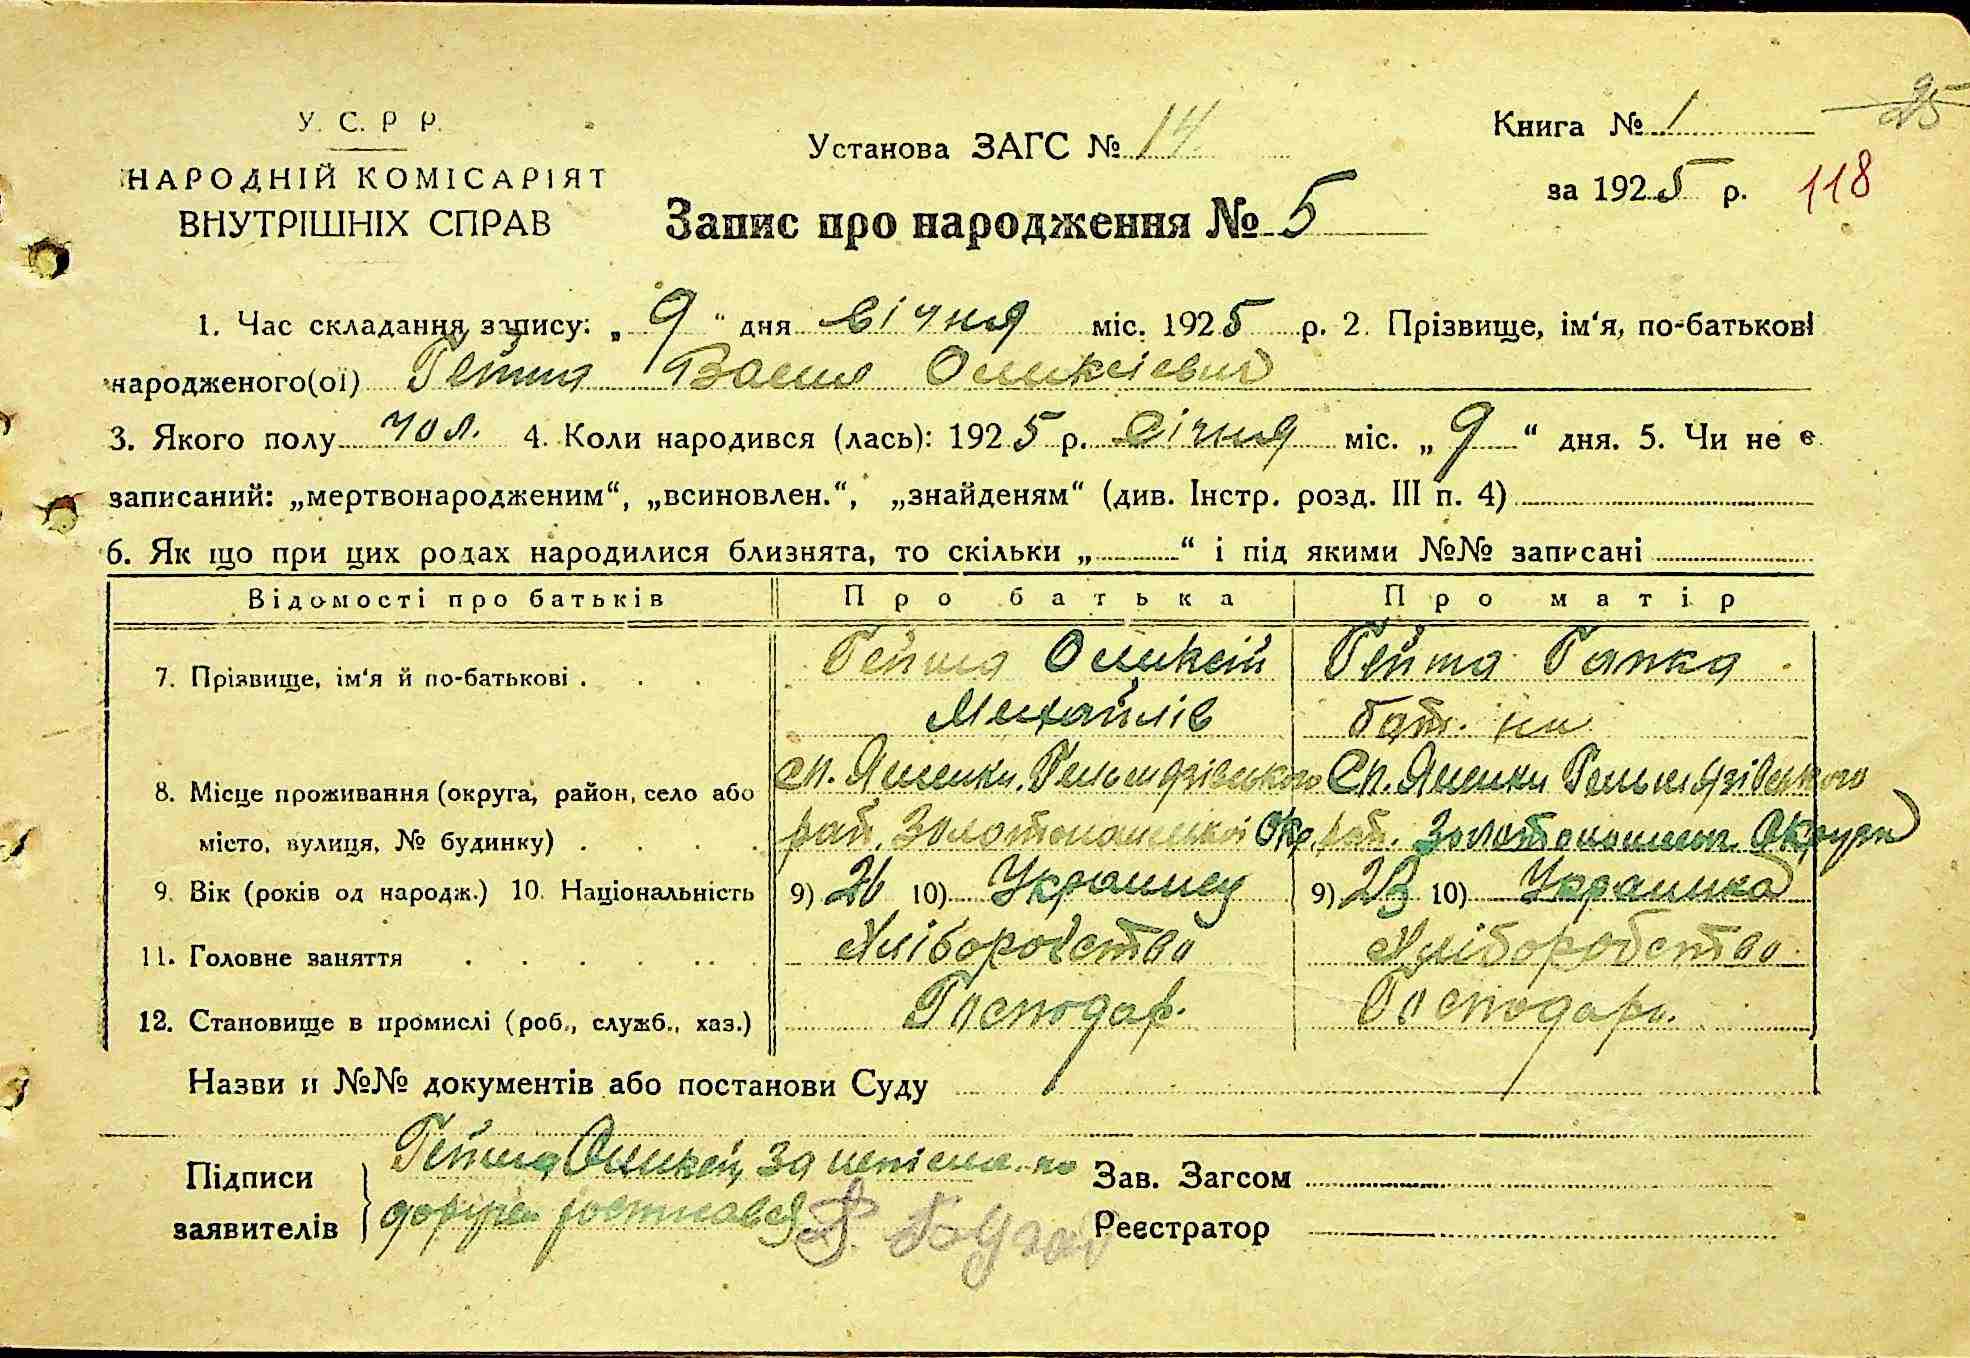 У. С. Р. Р.
НАРОДНІЙ КОМІСАРІЯТ
ВНУТРІШНІХ СПРАВ
Установа ЗАГС № 14
Книга № 1
25
за 1925 р. 118
Запис про народження № 5
1. Час складання запису: „ 9 " дня січня міс. 1925 р. 2. Прізвище, ім'я, по-батькові
народженого(ої) Василь Олексієвич
3. Якого полу чол. 4. Коли народився (лась): 1925 р. січня міс. „ 9 “ дня. 5. Чи не є
записаний: „мертвонародженим“, „всиновлен.“, „знайденям“ (див. Інстр. розд. III п. 4)
6. Як що при цих родах народилися близнята, то скільки „ “ і під якими №№ записані
Відомості про батьків Про батька Про матір
7. Прізвище, ім'я й по-батькові . . . Олексій Ганка
Михайлів бат.
8. Місце проживання (округа, район, село або
місто, вулиця, № будинку) . . . . рай. Золотоношської Окр. рай. Золотоношськ. Округи
9. Вік (років од народж.) 10. Національність 9) 26 10) Українец 9) 23 10) Українка
11. Головне заняття . . . . . . Хліборобство Хліборобство
12. Становище в промислі (роб., служб., хаз.) Господар. Господарк.
Назви и №№ документів або постанови Суду
Підписи
заявителів
Зав. Загсом
Реєстратор